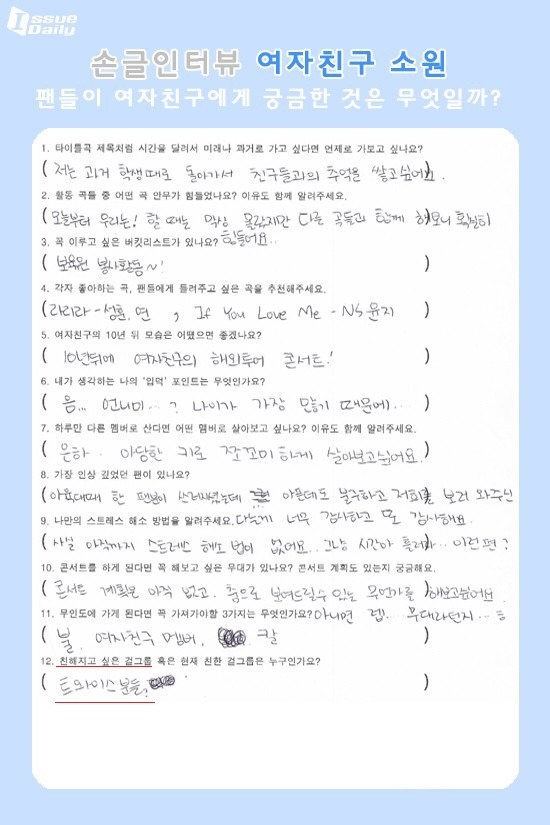 Issue Daily
손글인터뷰 여자친구 소원
팬들이 여자친구에게 궁금한 것은 무엇일까?
1. 타이틀곡 제목처럼 시간을 달려서 미래나 과거로 가고 싶다면 언제로 가보고 싶나요?
( 저는 과거 학생때로 돌아가서 친구들과의 추억을 쌓고싶어요. )
2. 활동 곡들 중 어떤 곡 안무가 힘들었나요? 이유도 함께 알려주세요.
( 오늘부터 우리는! 할 때는 막상 몰랐지만 다른 곡들과 함께 해보니 확실히
힘들어요..
3. 꼭 이루고 싶은 버킷리스트가 있나요?
( 보육원 봉사활동~! )
4. 각자 좋아하는 곡, 팬들에게 들려주고 싶은 곡을 추천해주세요.
( 라리라-성훈.면 , If You Love Me - NS 윤지 )
5. 여자친구의 10년 뒤 모습은 어땠으면 좋겠나요?
( 10년뒤에 여자친구의 해외투어 콘서트! )
6. 내가 생각하는 나의 '입덕' 포인트는 무엇인가요?
( 음... 언니미...? 나이가 가장 많기 때문에... )
7. 하루만 다른 멤버로 산다면 어떤 멤버로 살아보고 싶나요? 이유도 함께 알려주세요.
( 은하. 아담한 키로 쪼꼬미하게 살아보고싶어요. )
8. 가장 인상 깊었던 팬이 있나요?
( 아육대때 한 팬분이 쓰러지셨는데 아픈데도 불구하고 저희를 보러 와주신
9. 나만의 스트레스 해소 방법을 알려주세요. 너무 감사하고 또 감사해요.
( 사실 아직까지 스트레스 해소 법이 없어요.. 그냥 시간아 흘러라.. 이런편? )
10. 콘서트를 하게 된다면 꼭 해보고 싶은 무대가 있나요? 콘서트 계획도 있는지 궁금해요.
( 콘서트 계획은 아직 없고. 춤으로 보여드릴수 있는 무언가를 해보고싶어요. )
11. 무인도에 가게 된다면 꼭 가져가야할 3가지는 무엇인가요? 아니면 랩... 무대라던지...ㅎ
( 불. 여자친구 멤버. 칼 )
12. 친해지고 싶은 걸그룹 혹은 현재 친한 걸그룹은 누구인가요?
( 트와이스 분들? )